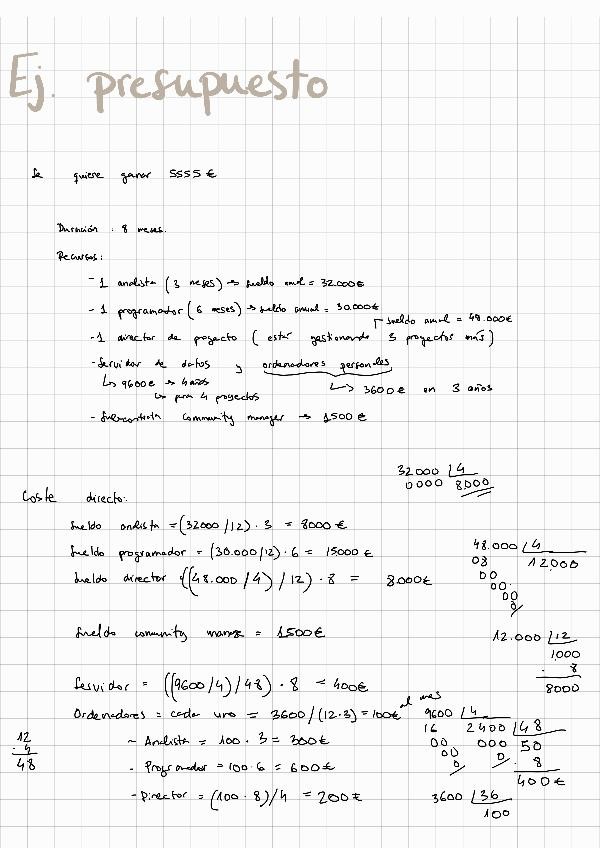 Ej. presupuesto
Se quiere ganar 5555 €
Duración : 8 meses.
Recursos:
- 1 analista (3 meses) → sueldo anual = 32.000€
- 1 programador (6 meses) → sueldo anual = 30.000€
sueldo anual = 48.000€
- 1 director de proyecto (estar gestionando 3 proyectos más)
- Servidor de datos y ordenadores personales
↳ 9600€ → 4 años
↳ 3600€ en 3 años
↳ para 4 proyectos
- Subcontrata community manager → 1500€
32000 | 4
0000 8.000
Coste directo:
Sueldo analista = (32000/12) · 3 = 8000€
Sueldo programador = (30.000/12) · 6 = 15000€
48.000 | 4
08 12.000
00
00
00
0
Sueldo director ((48.000/4)/12) · 8 = 8000€
Sueldo community manager = 1500€
12.000 | 12
1000
· 8
8000
Servidor = ((9600/4)/48) · 8 = 400€
Ordenadores = cada uno = 3600/(12·3) = 100€ al mes
9600 | 4
16 2400 | 48
00 000 50
00 0 · 8
0 400€
12
· 4
48
- Analista = 100 · 3 = 300€
- Programador = 100 · 6 = 600€
- Director = (100 · 8)/4 = 200€
3600 | 36
100